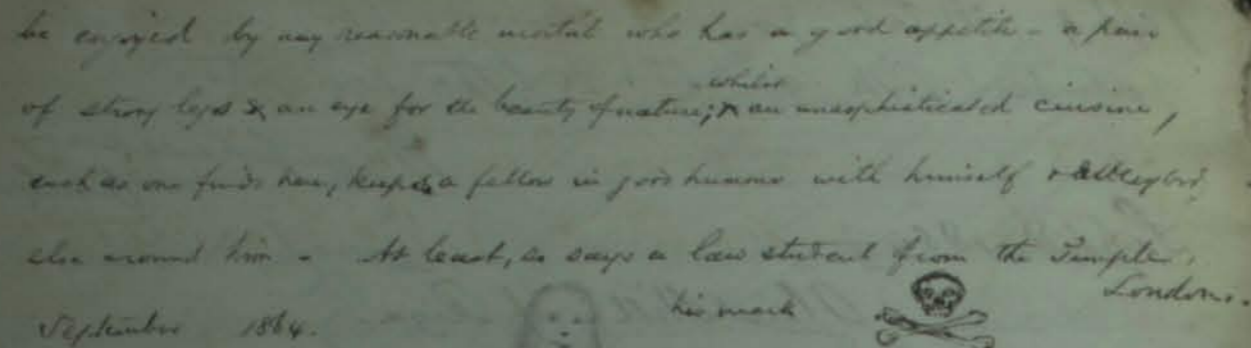 be enjoyed by any reasonable mortal who has a good appetite - a pair
whilst
of strong legs & an eye for the beauty of nature; an unsophisticated cuisine,
such as one finds here, keeps a fellow in good humour with himself &
else around him - At least, so says a law student from the Temple,
London.
September 1864. his mark